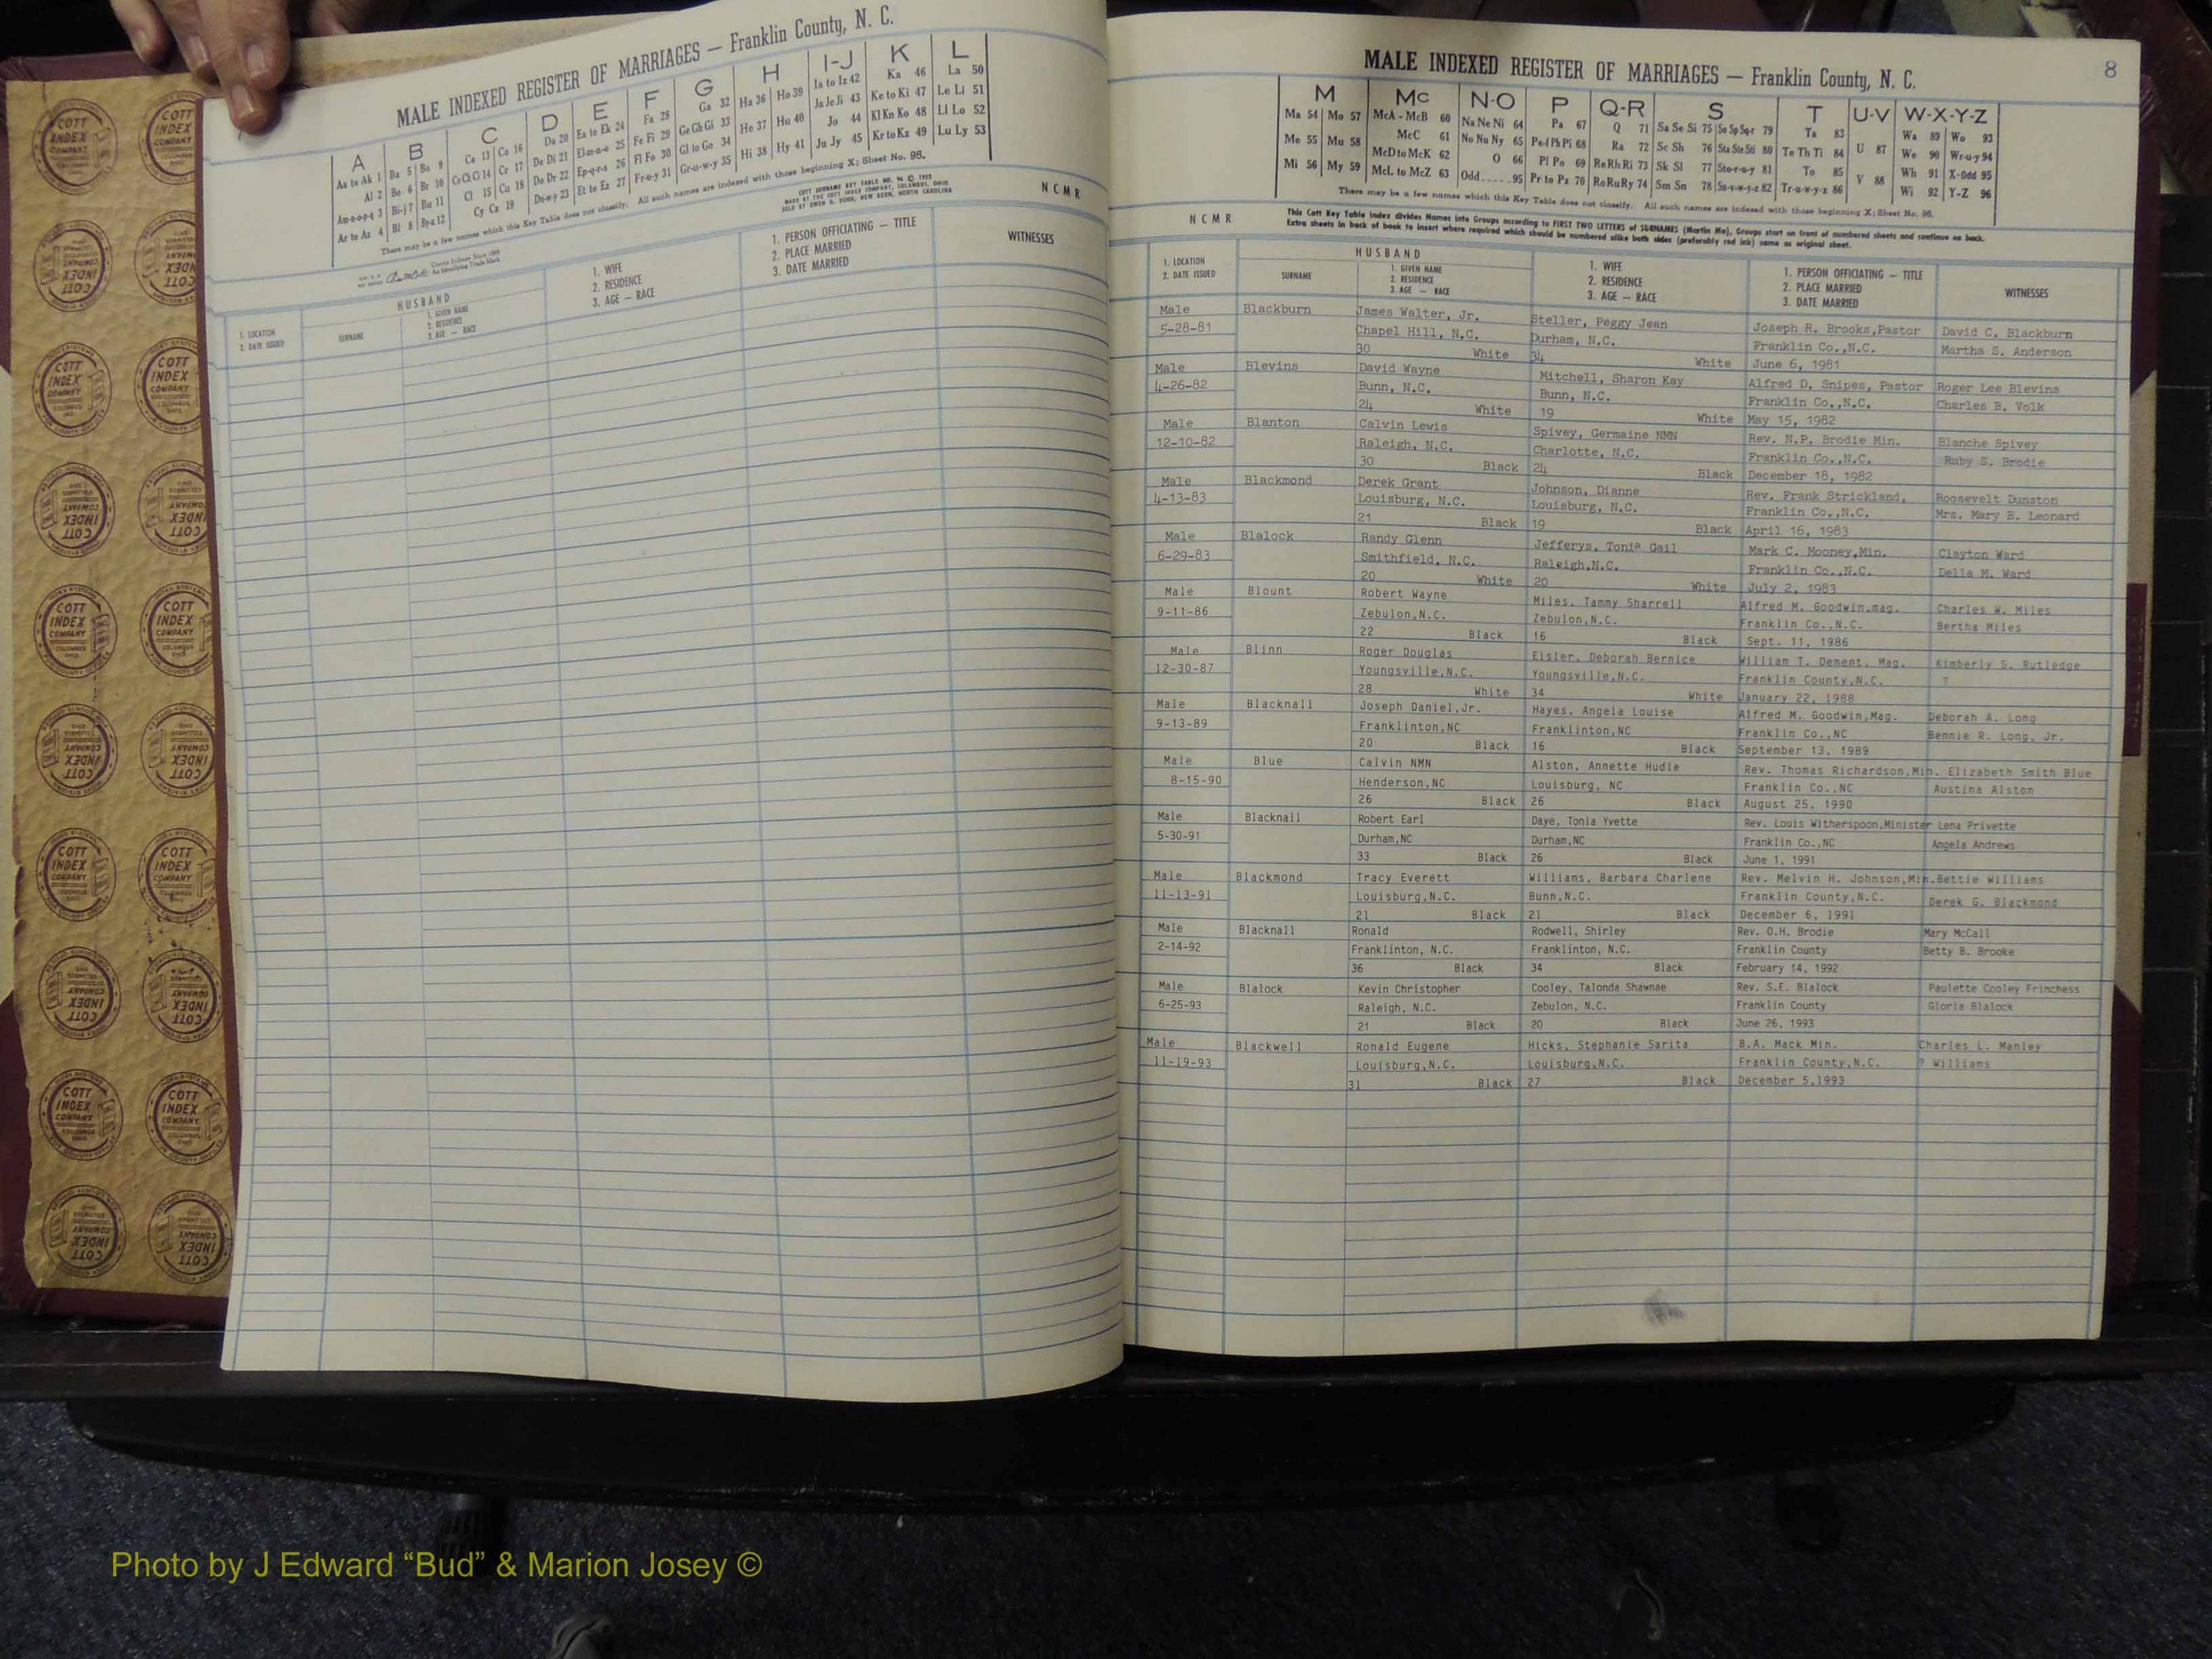 MALE INDEXED REGISTER OF MARRIAGES — Franklin County, N. C.
A B C D E F G H I-J K L
Aa to Ak 1 Ba 5 Bo 9 Ca 13 Co 16 Da 20 Ea to Ek 24 Fa 28 Ga 32 Ha 36 Ho 39 Ia to Iz 42 Ka 46 La 50
Al 2 Be 6 Br 10 Ce Ch Ci 14 Cr 17 De Di 21 El-m-n-o 25 Fe Fi 29 Ge Gh Gi 33 He 37 Hu 40 Ja Je Ji 43 Ke to Ki 47 Le Li 51
Am-n-o-p-q 3 Bi-j 7 Bu 11 Cl 15 Cu 18 Do Dr 22 Ep-q-r-s 26 Fl Fo 30 Gl to Go 34 Hi 38 Hy 41 Jo 44 Kl Kn Ko 48 Ll Lo 52
Ar to Az 4 Bl 8 By-z 12 Cy Cz 19 Du-w-y 23 Et to Ez 27 Fr-u-y 31 Gr-u-w-y 35 Ju Jy 45 Kr to Kz 49 Lu Ly 53
There may be a few names which this Key Table does not classify. All such names are indexed with those beginning X; Sheet No. 96.
COTT SURNAME KEY TABLE NO. 96 © 1952
MADE BY THE COTT INDEX COMPANY, COLUMBUS, OHIO
SOLD BY OWEN G. DUNN, NEW BERN, NORTH CAROLINA
N C M R
1. LOCATION
2. DATE ISSUED
HUSBAND
SURNAME
1. GIVEN NAME
2. RESIDENCE
3. AGE — RACE
1. WIFE
2. RESIDENCE
3. AGE — RACE
1. PERSON OFFICIATING — TITLE
2. PLACE MARRIED
3. DATE MARRIED
WITNESSES
COTT INDEX COMPANY
COLUMBUS OHIO
8
MALE INDEXED REGISTER OF MARRIAGES — Franklin County, N. C.
M Mc N-O P Q-R S T U-V W-X-Y-Z
Ma 54 Mo 57 McA - McB 60 Na Ne Ni 64 Pa 67 Q 71 Sa Se Si 75 So Sp Sq-r 79 Ta 83 U 87 Wa 89 Wo 93
Me 55 Mu 58 McC 61 No Nu Ny 65 Pe-f Ph Pi 68 Ra 72 Sc Sh 76 Sta Ste Sti 80 Te Th Ti 84 V 88 We 90 Wr-u-y 94
Mi 56 My 59 McD to McK 62 O 66 Pl Po 69 Re Rh Ri 73 Sk Sl 77 Sto-r-u-y 81 To 85 Wh 91 X-Odd 95
McL to McZ 63 Odd 95 Pr to Pz 70 Ro Ru Ry 74 Sm Sn 78 Su-v-w-y-z 82 Tr-u-w-y-z 86 Wi 92 Y-Z 96
There may be a few names which this Key Table does not classify. All such names are indexed with those beginning X; Sheet No. 96.
N C M R
This Cott Key Table Index divides Names into Groups according to FIRST TWO LETTERS of SURNAMES (Martin Ma), Groups start on front of numbered sheets and continue on back.
Extra sheets in back of book to insert where required which should be numbered alike both sides (preferably red ink) same as original sheet.
1. LOCATION
2. DATE ISSUED
HUSBAND
SURNAME
1. GIVEN NAME
2. RESIDENCE
3. AGE — RACE
1. WIFE
2. RESIDENCE
3. AGE — RACE
1. PERSON OFFICIATING — TITLE
2. PLACE MARRIED
3. DATE MARRIED
WITNESSES
Male Blackburn James Walter, Jr. Steller, Peggy Jean Joseph R. Brooks,Pastor David C. Blackburn
5-28-81 Chapel Hill, N.C. Durham, N.C. Franklin Co.,N.C. Martha S. Anderson
30 White 34 White June 6, 1981
Male Blevins David Wayne Mitchell, Sharon Kay Alfred D. Snipes, Pastor Roger Lee Blevins
4-26-82 Bunn, N.C. Bunn, N.C. Franklin Co.,N.C. Charles B. Volk
24 White 19 White May 15, 1982
Male Blanton Calvin Lewis Spivey, Germaine NMN Rev. N.P. Brodie Min. Blanche Spivey
12-10-82 Raleigh, N.C. Charlotte, N.C. Franklin Co.,N.C. Ruby S. Brodie
30 Black 24 Black December 18, 1982
Male Blackmond Derek Grant Johnson, Dianne Rev. Frank Strickland, Roosevelt Dunston
4-13-83 Louisburg, N.C. Louisburg, N.C. Franklin Co.,N.C. Mrs. Mary B. Leonard
21 Black 19 Black April 16, 1983
Male Blalock Randy Glenn Jefferys, Tonia Gail Mark C. Mooney,Min. Clayton Ward
6-29-83 Smithfield, N.C. Raleigh,N.C. Franklin Co.,N.C. Della M. Ward
20 White 20 White July 2, 1983
Male Blount Robert Wayne Miles, Tammy Sharrell Alfred M. Goodwin,mag. Charles W. Miles
9-11-86 Zebulon,N.C. Zebulon,N.C. Franklin Co.,N.C. Bertha Miles
22 Black 16 Black Sept. 11, 1986
Male Blinn Roger Douglas Eisler, Deborah Bernice William T. Dement, Mag. Kimberly S. Rutledge
12-30-87 Youngsville,N.C. Youngsville,N.C. Franklin County,N.C. ?
28 White 34 White January 22, 1988
Male Blacknall Joseph Daniel,Jr. Hayes, Angela Louise Alfred M. Goodwin,Mag. Deborah A. Long
9-13-89 Franklinton,NC Franklinton,NC Franklin Co.,NC Bennie R. Long, Jr.
20 Black 16 Black September 13, 1989
Male Blue Calvin NMN Alston, Annette Hudie Rev. Thomas Richardson,Min. Elizabeth Smith Blue
8-15-90 Henderson,NC Louisburg, NC Franklin Co.,NC Austina Alston
26 Black 26 Black August 25, 1990
Male Blacknall Robert Earl Daye, Tonia Yvette Rev. Louis Witherspoon,Minister Lena Privette
5-30-91 Durham,NC Durham,NC Franklin Co.,NC Angela Andrews
33 Black 26 Black June 1, 1991
Male Blackmond Tracy Everett Williams, Barbara Charlene Rev. Melvin H. Johnson,Min. Bettie Williams
11-13-91 Louisburg,N.C. Bunn,N.C. Franklin County,N.C. Derek G. Blackmond
21 Black 21 Black December 6, 1991
Male Blacknall Ronald Rodwell, Shirley Rev. O.H. Brodie Mary McCall
2-14-92 Franklinton, N.C. Franklinton, N.C. Franklin County Betty B. Brooke
36 Black 34 Black February 14, 1992
Male Blalock Kevin Christopher Cooley, Talonda Shawnae Rev. S.E. Blalock Paulette Cooley Frinchess
6-25-93 Raleigh, N.C. Zebulon, N.C. Franklin County Gloria Blalock
21 Black 20 Black June 26, 1993
Male Blackwell Ronald Eugene Hicks, Stephanie Sarita B.A. Mack Min. Charles L. Manley
11-19-93 Louisburg,N.C. Louisburg,N.C. Franklin County,N.C. ? Williams
31 Black 27 Black December 5,1993
Photo by J Edward “Bud” & Marion Josey ©